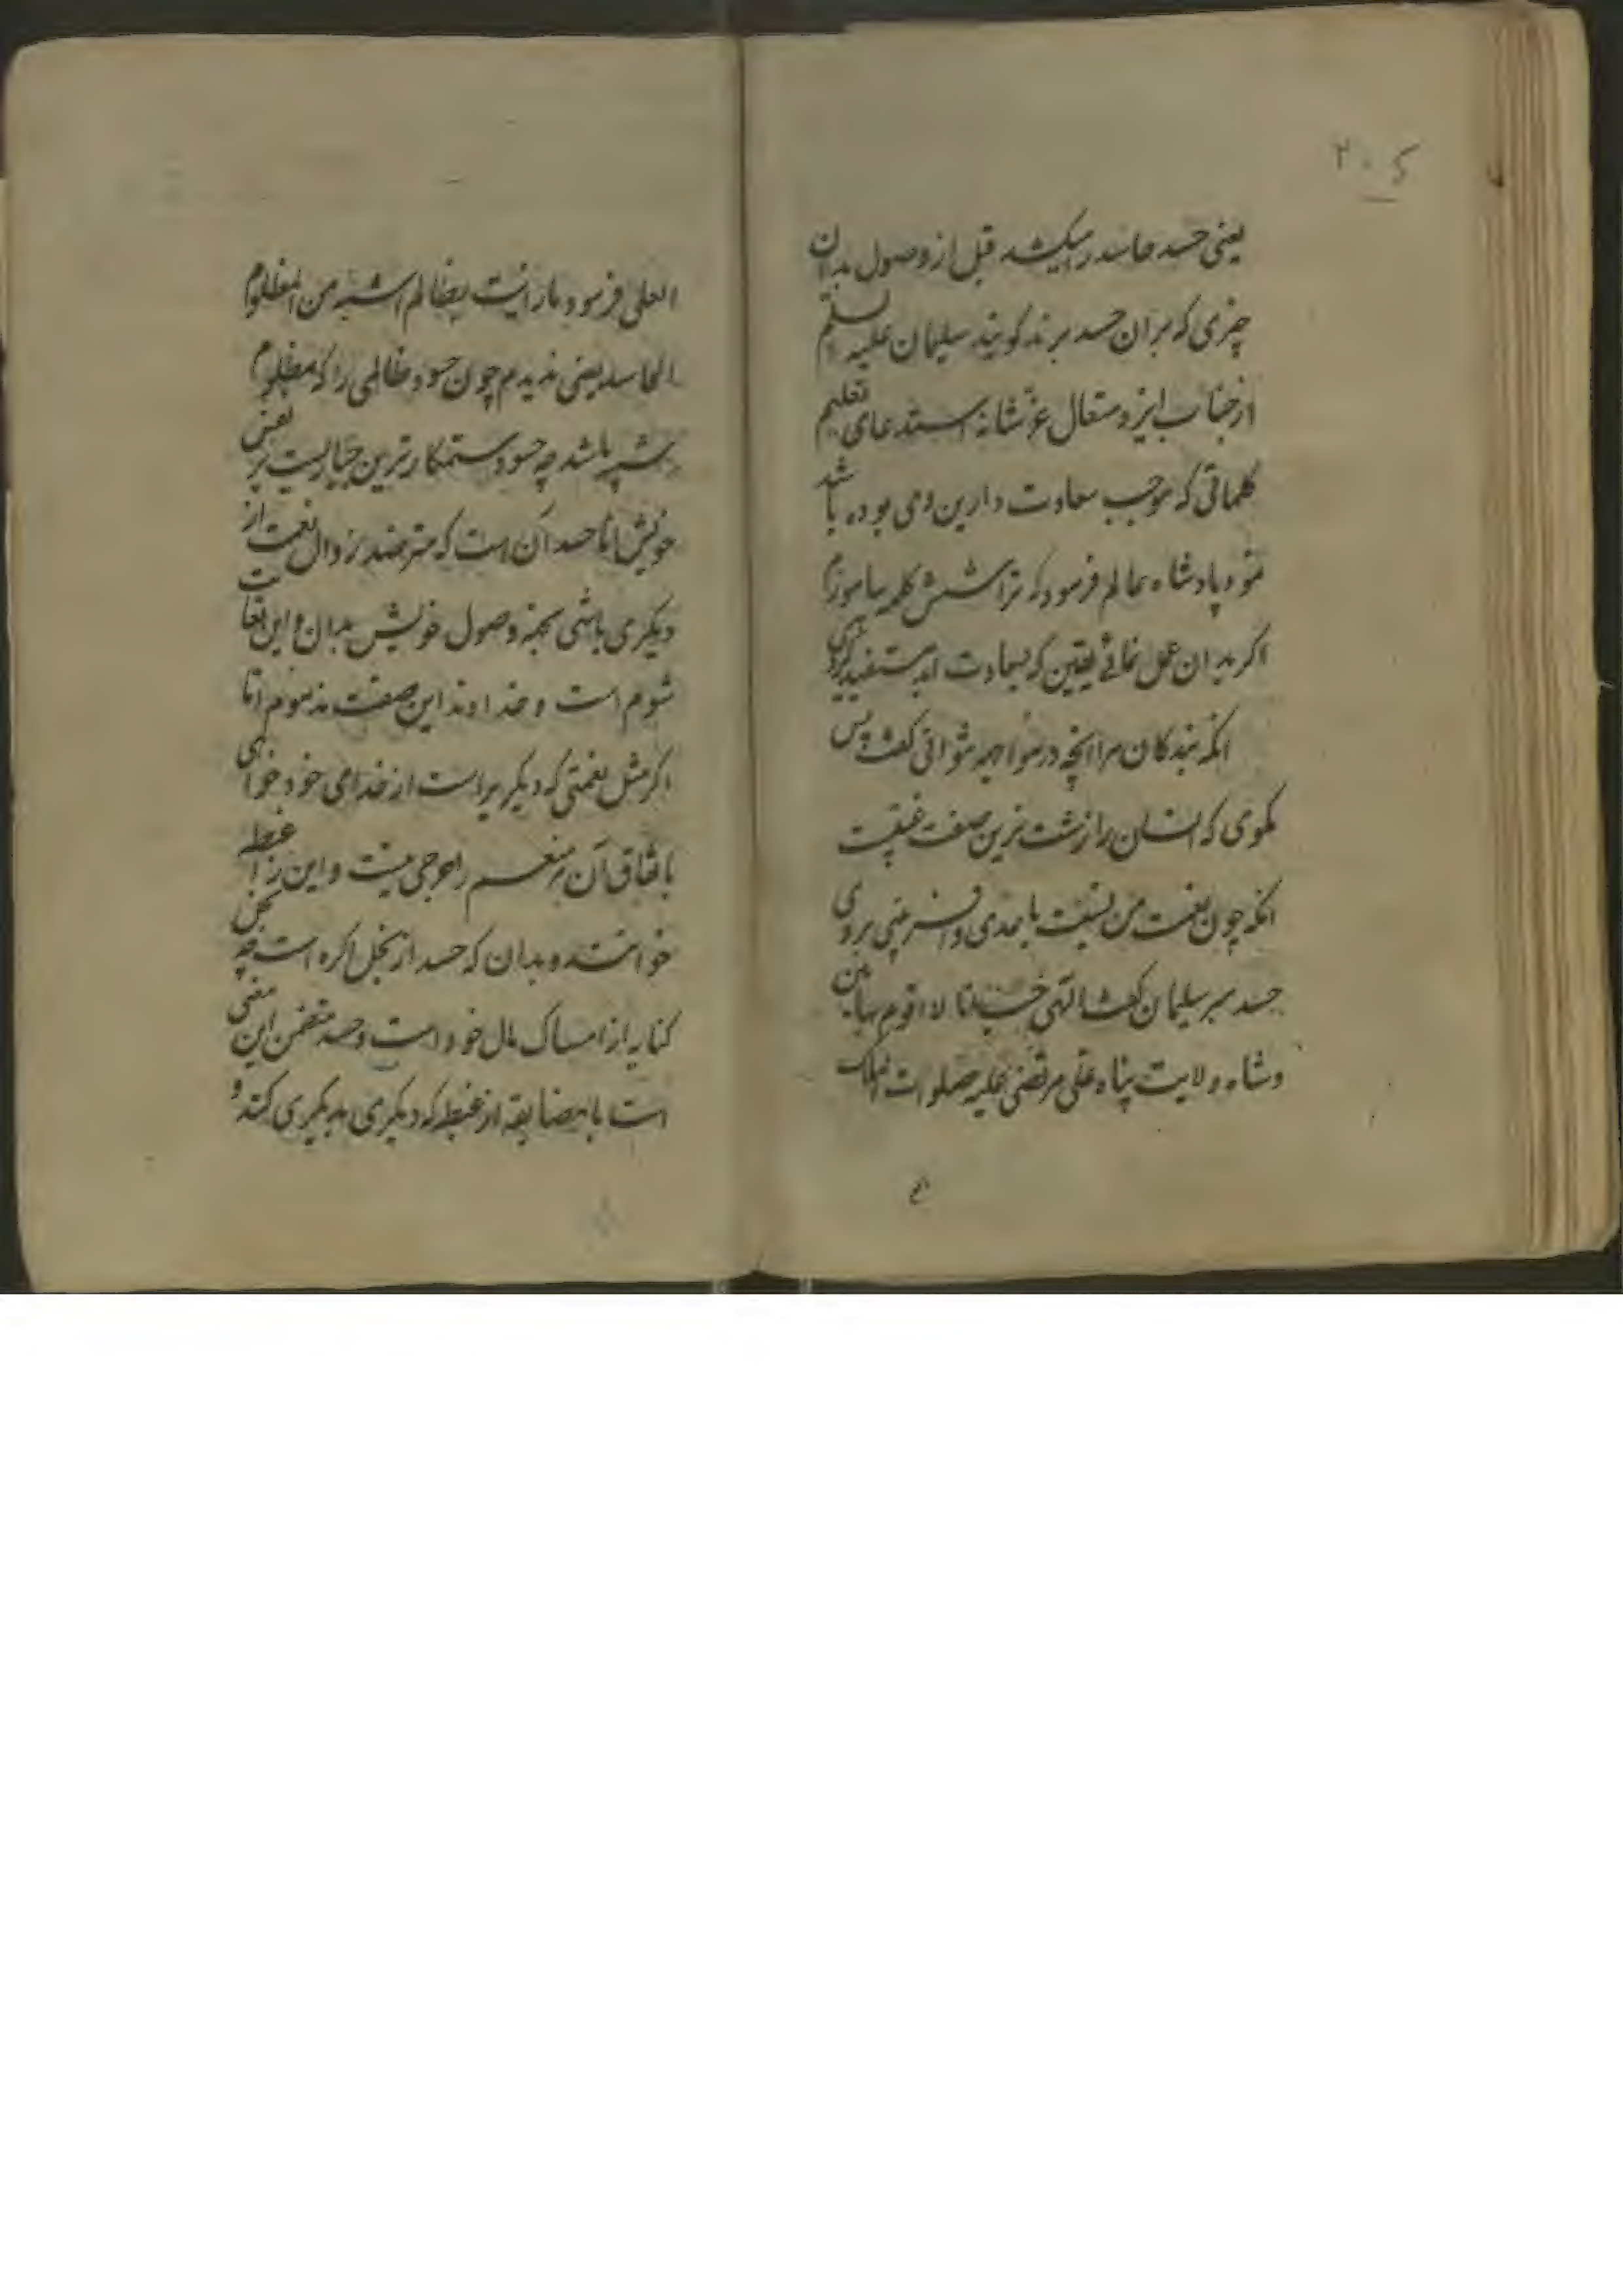 ۲۰۵
یعنی حسد حاسد را میکشد قبل از وصول بدان
چیزی که بران حسد برند کویند سلیمان علیه السلم
از جناب ایزد متعال عز شانه استدعای تعلیم
کلماتی که موجب سعادت دارین وی بوده باشد
نمود پادشاه عالم فرمود که ترا شش کلمه بیاموزم
اکر بدان عمل نمائی یقین که بسعادت ابد مستفید کردی
انکه بندکان مرا انچه در مواجهه نتوانی کفت پس
مکوی که انسان را زشت ترین صفت غیبتست
انکه چون نعمت من نسبت با بمدی وافر بینی بر وی
حسد مبر سلیمان کفت الهی حسبنا لا اقوم بهاتین
وشاه ولایت پناه علی مرتضی علیه صلوات الملک
العلی فرمود ما رائیت بظالم اشبه من المظلوم
الحاسد یعنی ندیدم چون حسود ظالمی را که بمظلوم
شبیه باشد چه حسود ستمکار ترین جباریست بر نفس
خویش اما حسد آن است که مترصد زوال نعمت از
دیکری باشی بجهة وصول خویش بدان و این بغایت
شوم است و خداوند این صفت مذموم اما
اکر مثل نعمتی که دیکریراست از خدای خود خواهی
باتفاق آن بر منعم را حرجی نیست و این را غبطه
خوانند و بدان که حسد از بخل اکره است چه بخل
کنایه از امساک مال خود است و حسد متضمن این معنی
است با مضایقه از غبطه که دیکری بدیکری کند و